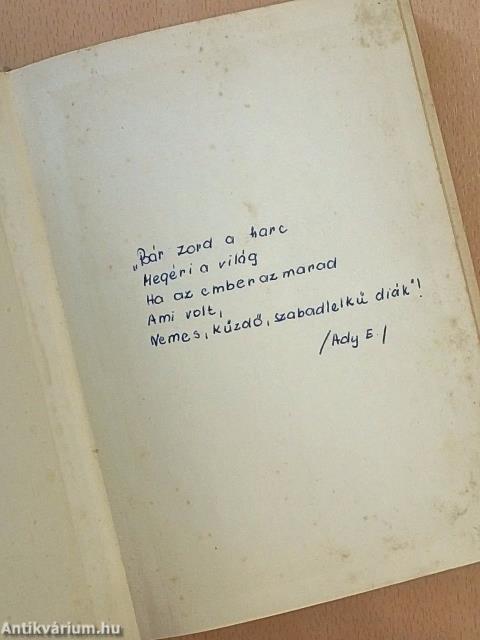 „Bár zord a harc
Megéri a világ
Ha az ember az marad
Ami volt,
Nemes, küzdő, szabadlelkű diák"!
/Ady E./
Antikvárium.hu